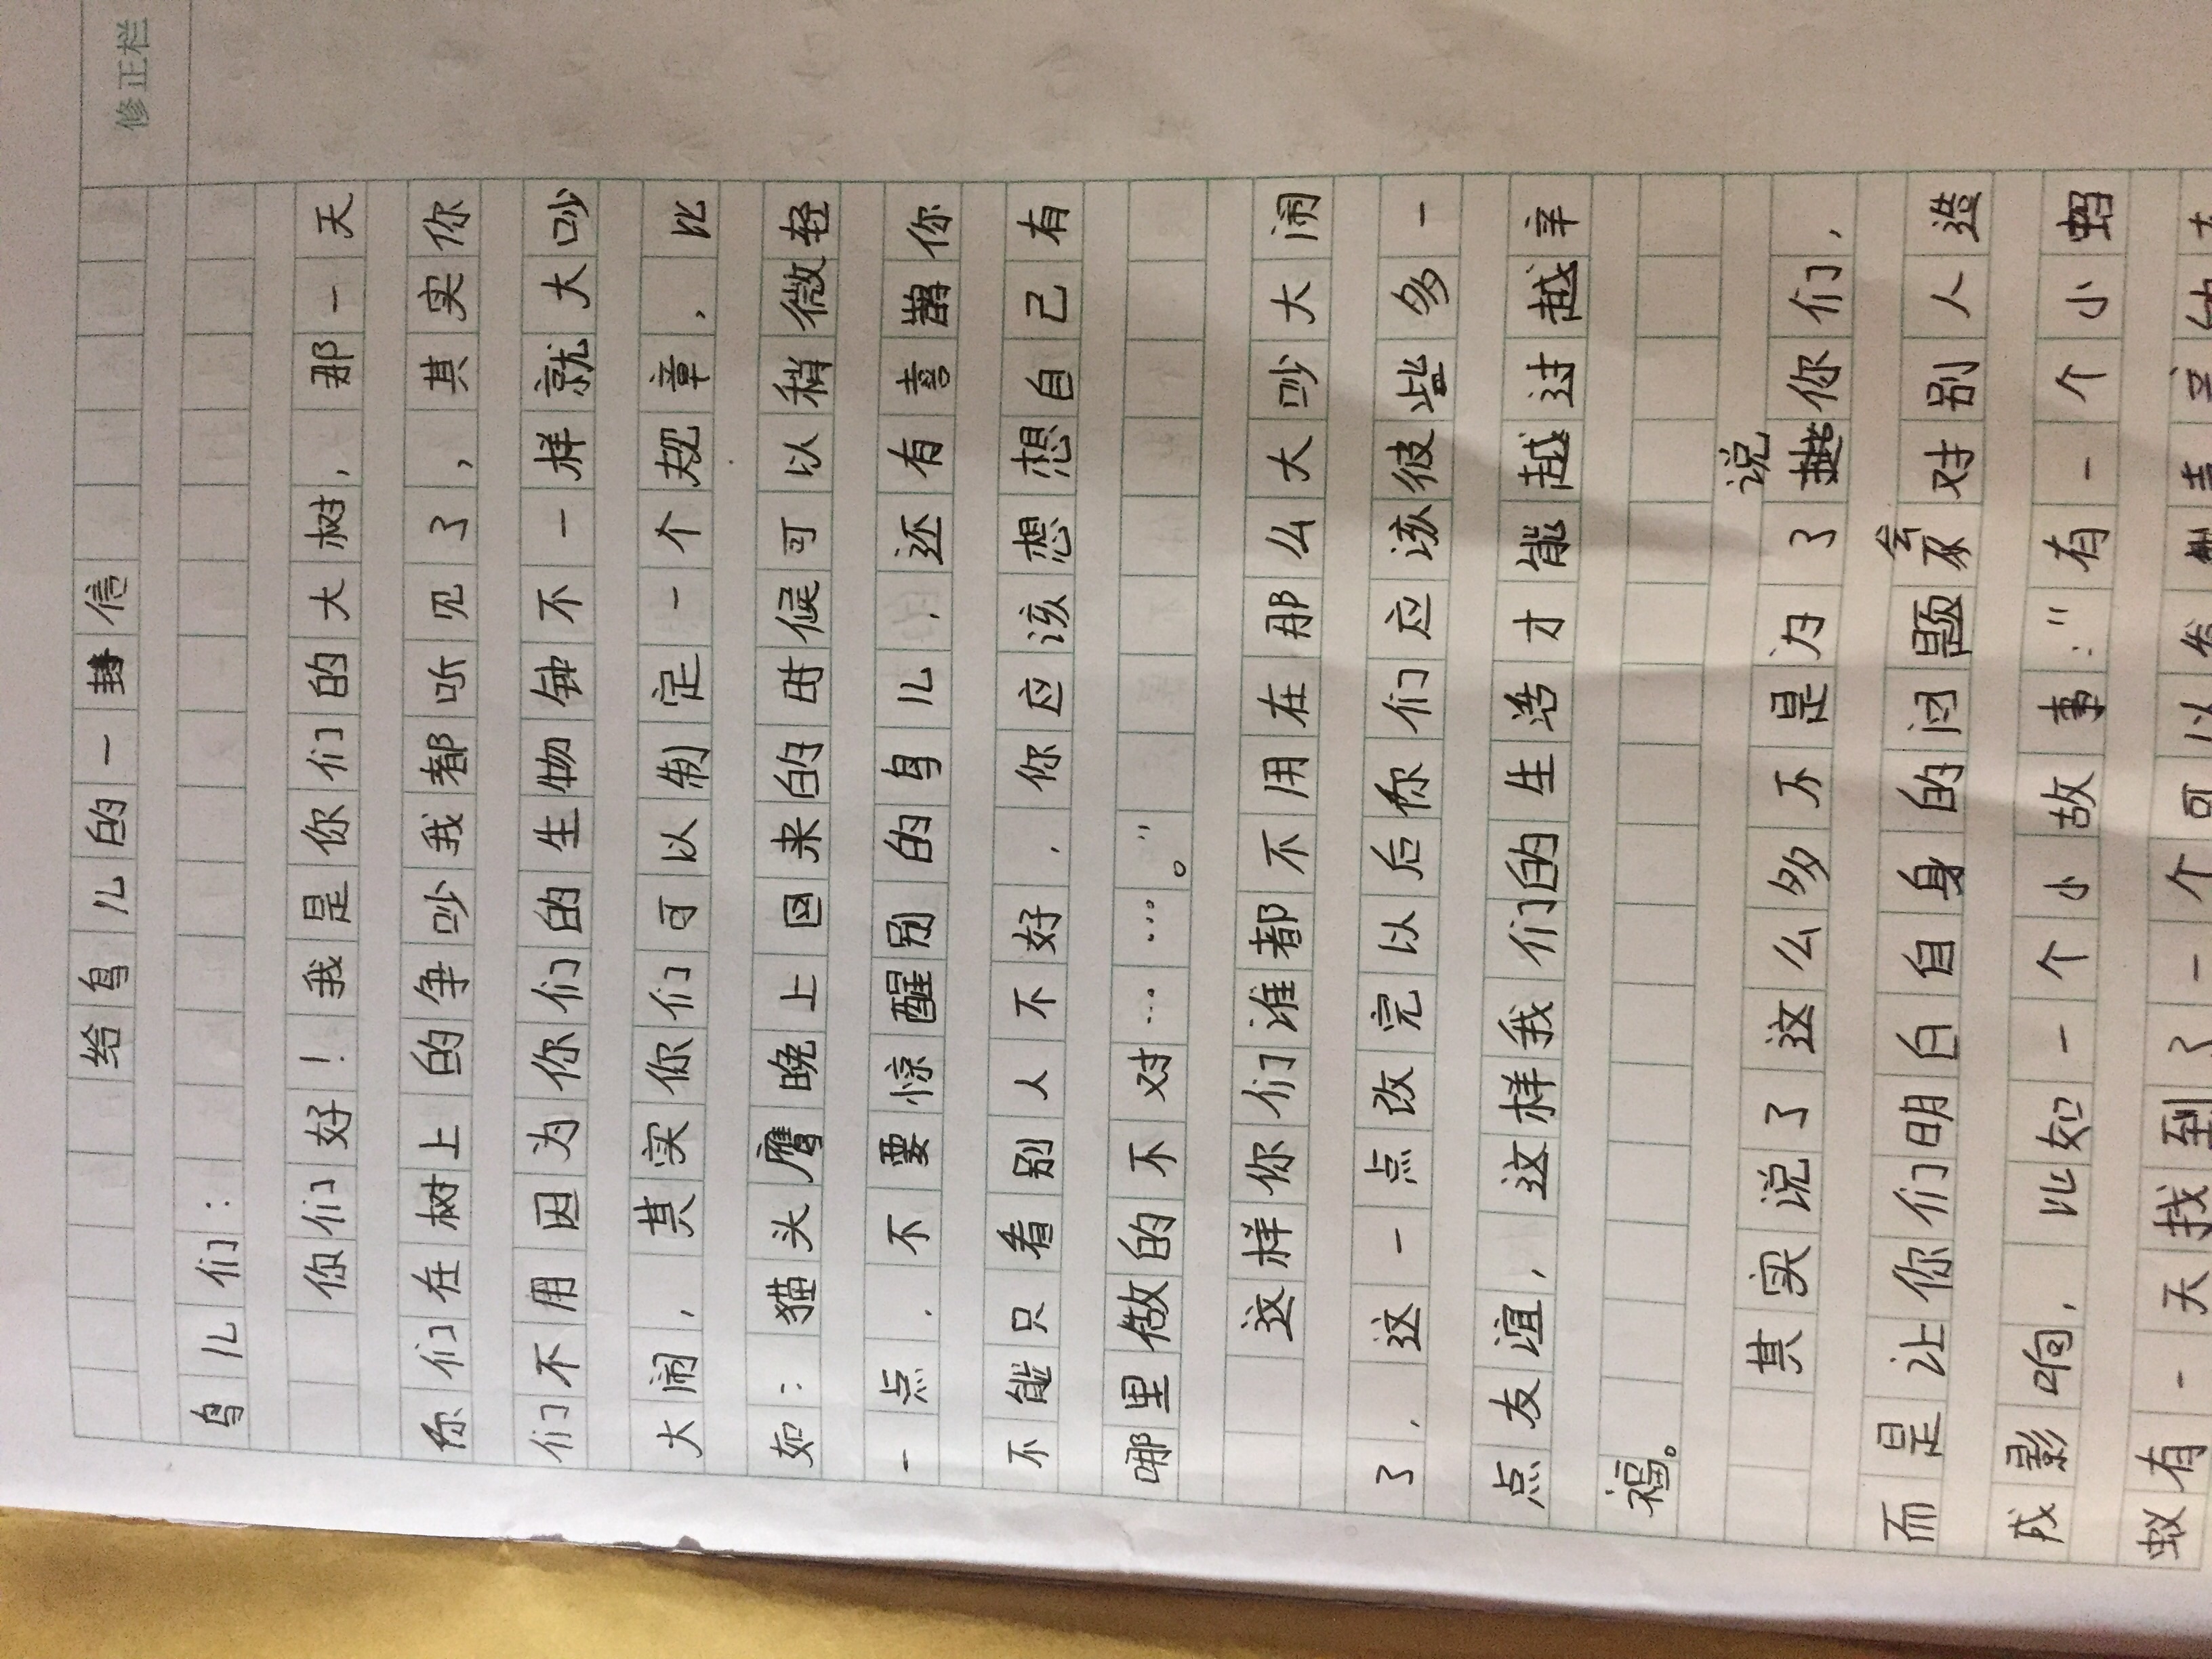 修正栏
给鸟儿的一封信
鸟儿们：
你们好！我是你们的大树，那一天
你们在树上的争吵我都听见了，其实你
们不用因为你们的生物钟不一样就大吵
大闹，其实你们可以制定一个规章，比
如：猫头鹰晚上回来的时候可以稍微轻
一点，不要惊醒别的鸟儿，还有喜鹊你
不能只看别人不好，你应该想想自己有
哪里做的不对……。”
这样你们谁都不用在那么大吵大闹
了，这一点改完以后你们应该彼此多一
点友谊，这样我们的生活才能越过越辛
福。
其实说了这么多不是为了说你们，
而是让你们明白自身的问题会对别人造
成影响，比如一个小故事：“有一个小蚂
蚁有一天找到了一个可以